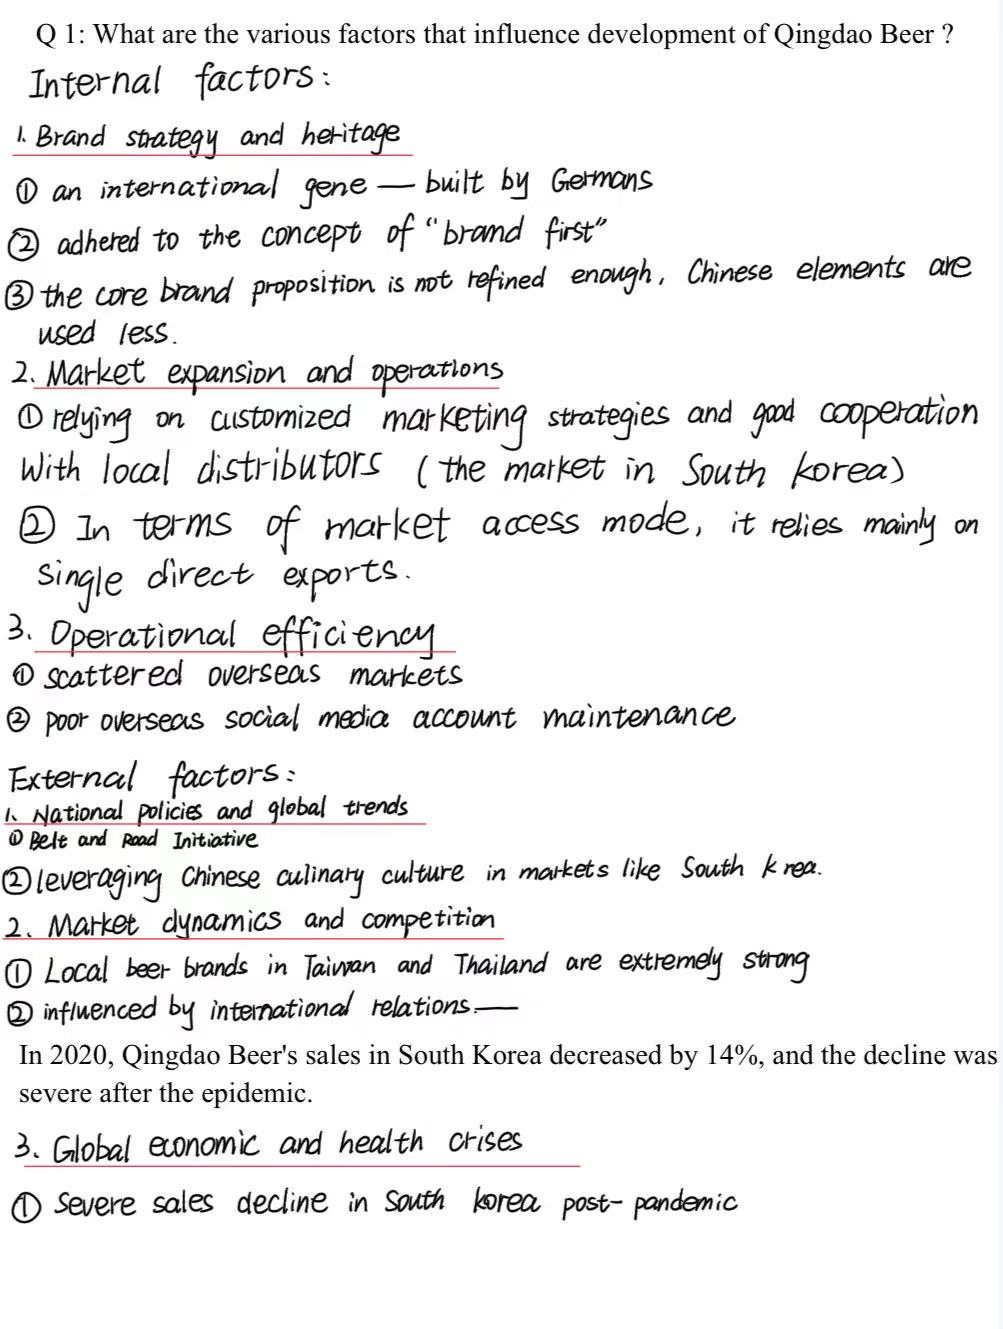 Q 1: What are the various factors that influence development of Qingdao Beer ?
Internal factors:
1. Brand strategy and heritage
① an international gene — built by Germans
② adhered to the concept of "brand first"
③ the core brand proposition is not refined enough, Chinese elements are
used less.
2. Market expansion and operations
① relying on customized marketing strategies and good cooperation
With local distributors (the market in South korea)
② In terms of market access mode, it relies mainly on
single direct exports.
3. Operational efficiency
① scattered overseas markets
② poor overseas social media account maintenance
External factors:
1. National policies and global trends
① Belt and Road Initiative
② leveraging Chinese culinary culture in markets like South k rea.
2. Market dynamics and competition
① Local beer brands in Taiwan and Thailand are extremely strong
② influenced by international relations.—
In 2020, Qingdao Beer's sales in South Korea decreased by 14%, and the decline was
severe after the epidemic.
3. Global economic and health crises
① Severe sales decline in South korea post-pandemic